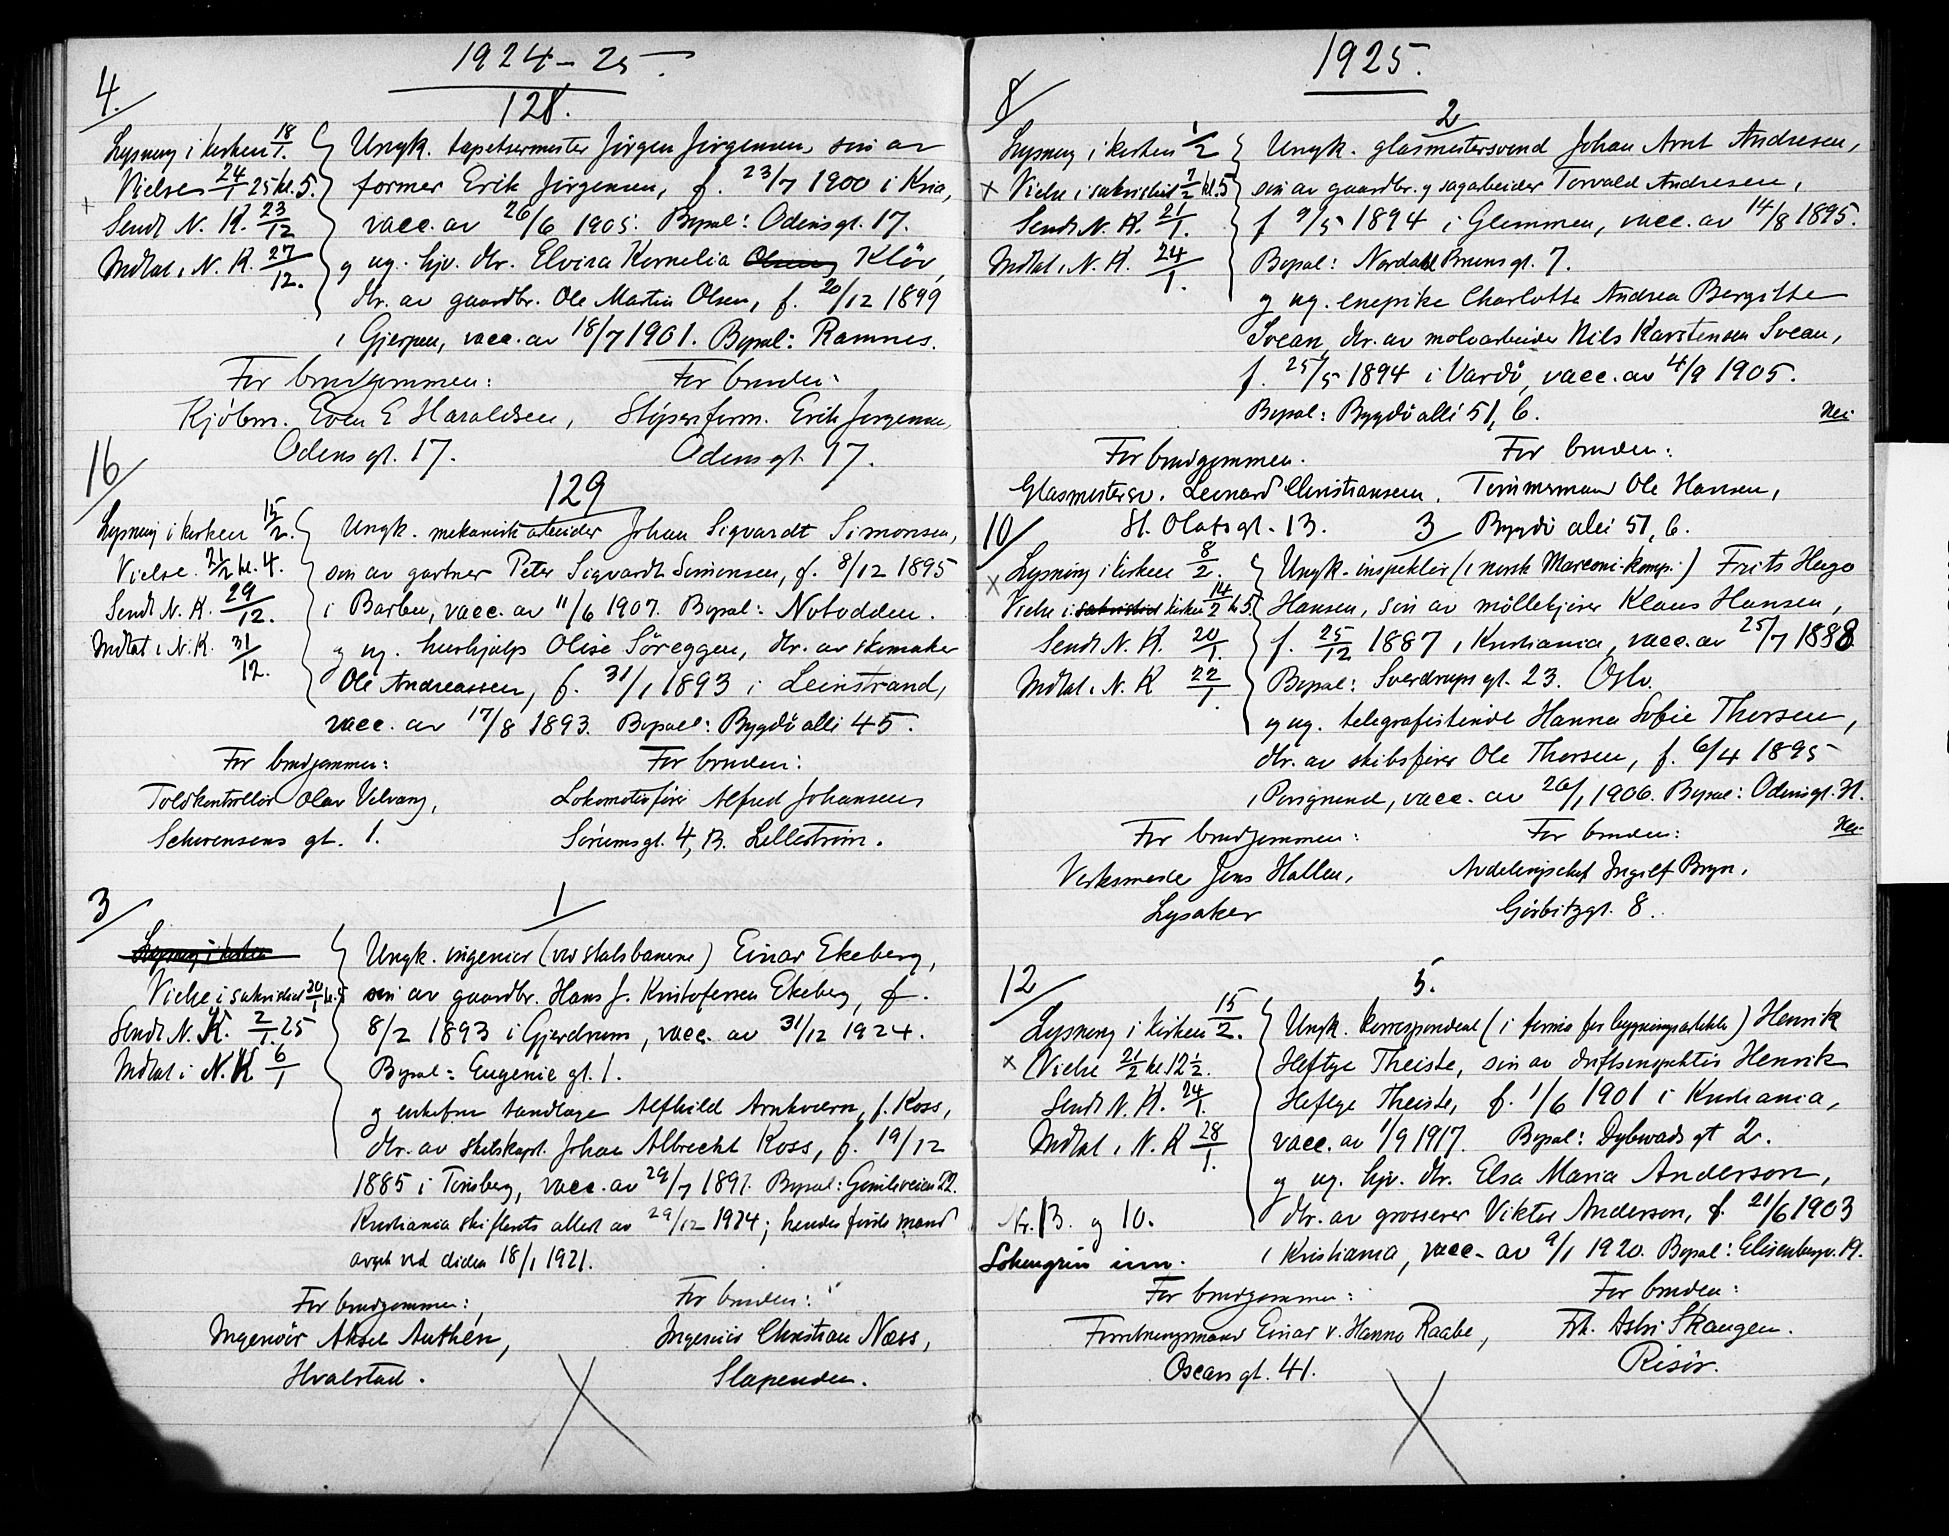 1924-25.
4.
128.
Lysning i kirken 18/1.
Vielse 24/1 25 kl. 5.
Sendt N. K. 23/12
Mottat i N. K. 27/12.
Ungk. tapetsermester Jørgen Jørgensen, søn av
former Erik Jørgensen, f. 23/7 1900 i Kria,
vacc. av 26/6 1905. Bopæl: Odinsgt. 17.
g ug. hjv. dtr. Elvira Kornelia Olsen Kløv,
dtr. av gaardbr. Ole Martin Olsen, f. 20/12 1899
i Gjerpen, vacc. av 18/7 1901. Bopæl: Ramnes.
For brudgommen: For bruden:
Kjøbm. Even E Haraldsen, Støperiform. Erik Jørgensen,
Odins gt. 17. Odins gt. 17.
16
129
Lysning i kirken 15/2.
Vielse 21/2 kl. 4.
Sendt N. K. 29/12.
Mottat i N. K. 31/12.
Ungk. mekanisk arbeider Johan Sigvardt Simonsen,
søn av gartner Peter Sigvardt Simonsen, f. 8/12 1895
i Barbu, vacc. av 11/6 1907. Bopæl: Notodden.
g ug. hushjælp Olise Söreggen, dtr. av skomaker
Ole Andreassen, f. 31/1 1893 i Leinstrand,
vacc. av 17/8 1893. Bopæl: Bygdö alli 45.
For brudgommen: For bruden:
Toldkontrollør Olav Velvang, Lokomotivfører Alfred Johansen
Schwensens gt. 1. Sørumsgt. 4, B. Lillestrøm.
3
1
Lysning i kirken
Vielse i sakristiet 20/1 kl. 5
Sendt N. K. 2/1. 25
Mottat i N. K 6/1
Ungk. ingeniør (ved statsbanerne) Einar Ekeberg,
søn av gaardbr. Hans J. Kristofersen Ekeberg, f.
8/2 1893 i Gjerdrum, vacc. av 31/12 1924.
Bopæl: Eugenie gt. 1.
g enkefru tandlæge Alfhild Arnkværn, f. Koss,
dtr. av skibskapt. Johan Albrecht Koss, f. 19/12
1885 i Tønsberg, vacc. av 29/7 1891. Bopæl: Gimleveien 22.
Kristiania skifterets attest av 29/12 1924; hendes første mand
avgik ved døden 18/1 1921.
For brudgommen: For bruden:
Ingeniør Aksel Anthén, Ingeniør Christian Næss,
Hvalstad. Slependen.
1925.
8
2
Lysning i kirken 1/2
x Vielse i sakristiet 7/2 kl. 5
Sendt N. K. 21/1.
Mottat i N. K. 24/1.
Ungk. glasmestersvend Johan Arnt Andresen,
søn av gaardbr. g sagarbeider Torvald Andresen,
f 9/5 1894 i Glemmen, vacc. av 14/8 1895.
Bopæl: Nordahl Bruns gt. 7.
g ug. enepike Charlotte Andrea Bergitte
Svean, dtr. av moloarbeider Nils Karstensen Svean,
f. 25/5 1894 i Vardö, vacc. av 4/9 1905.
Bopæl: Bygdö alli 51, b. Nei
For brudgommen. For bruden:
Glasmestersv. Leonard Christiansen, Tømmermand Ole Hansen,
St. Olafsgt. 13. Bygdö alei 51, b.
10
3
x Lysning i kirken 8/2.
Vielse i sakristiet kirken 14/2 kl 5
Sendt N. K. 20/1.
Mottat i N. K 22/1.
Ungk. inspektør (i norsk Marconi-komp.) Frits Hugo
Hansen, søn av møllebygger Klaus Hansen,
f. 25/12 1887 i Kristiania, vacc. av 25/7 1888
Bopæl: Sverdrups gt. 23. Oslo.
g ug. telegrafistinde Hanna Sofie Thorsen,
dtr. av skibsfører Ole Thorsen, f. 6/4 1895
i Porsgrund, vacc. av 26/1 1906. Bopæl: Odinsgt. 21.
For brudgommen: For bruden: Nei
Verksmester Jens Hallen, Avdelingschef Ingolf Bryn,
Lysaker Gørbitzgt. 8.
12
5.
Lysning i kirken 15/2.
x Vielse 21/2 kl. 12 1/2.
Sendt N. K. 24/1.
Mottat i N. K 28/1.
Nr. 13. g 10.
Lohengrin inn.
Ungk. korrespondent (i firma for bygningsartikler) Henrik
Heftye Theiste, søn av driftsinspektør Henrik
Heftye Theiste, f. 1/6 1901 i Kristiania,
vacc. av 1/9 1917. Bopæl: Dybwads gt 2.
g ug. hjv. dtr. Elsa Maria Anderson,
dtr. av grosserer Viktor Anderson, f. 21/6 1903
i Kristiania, vacc. av 9/1 1920. Bopæl: Elisenbergv. 19.
For brudgommen: For bruden:
Forretningsmand Einar v. Hanno Raabe, Frk. Astri Skaugen.
Oscars gt. 41. Risör.